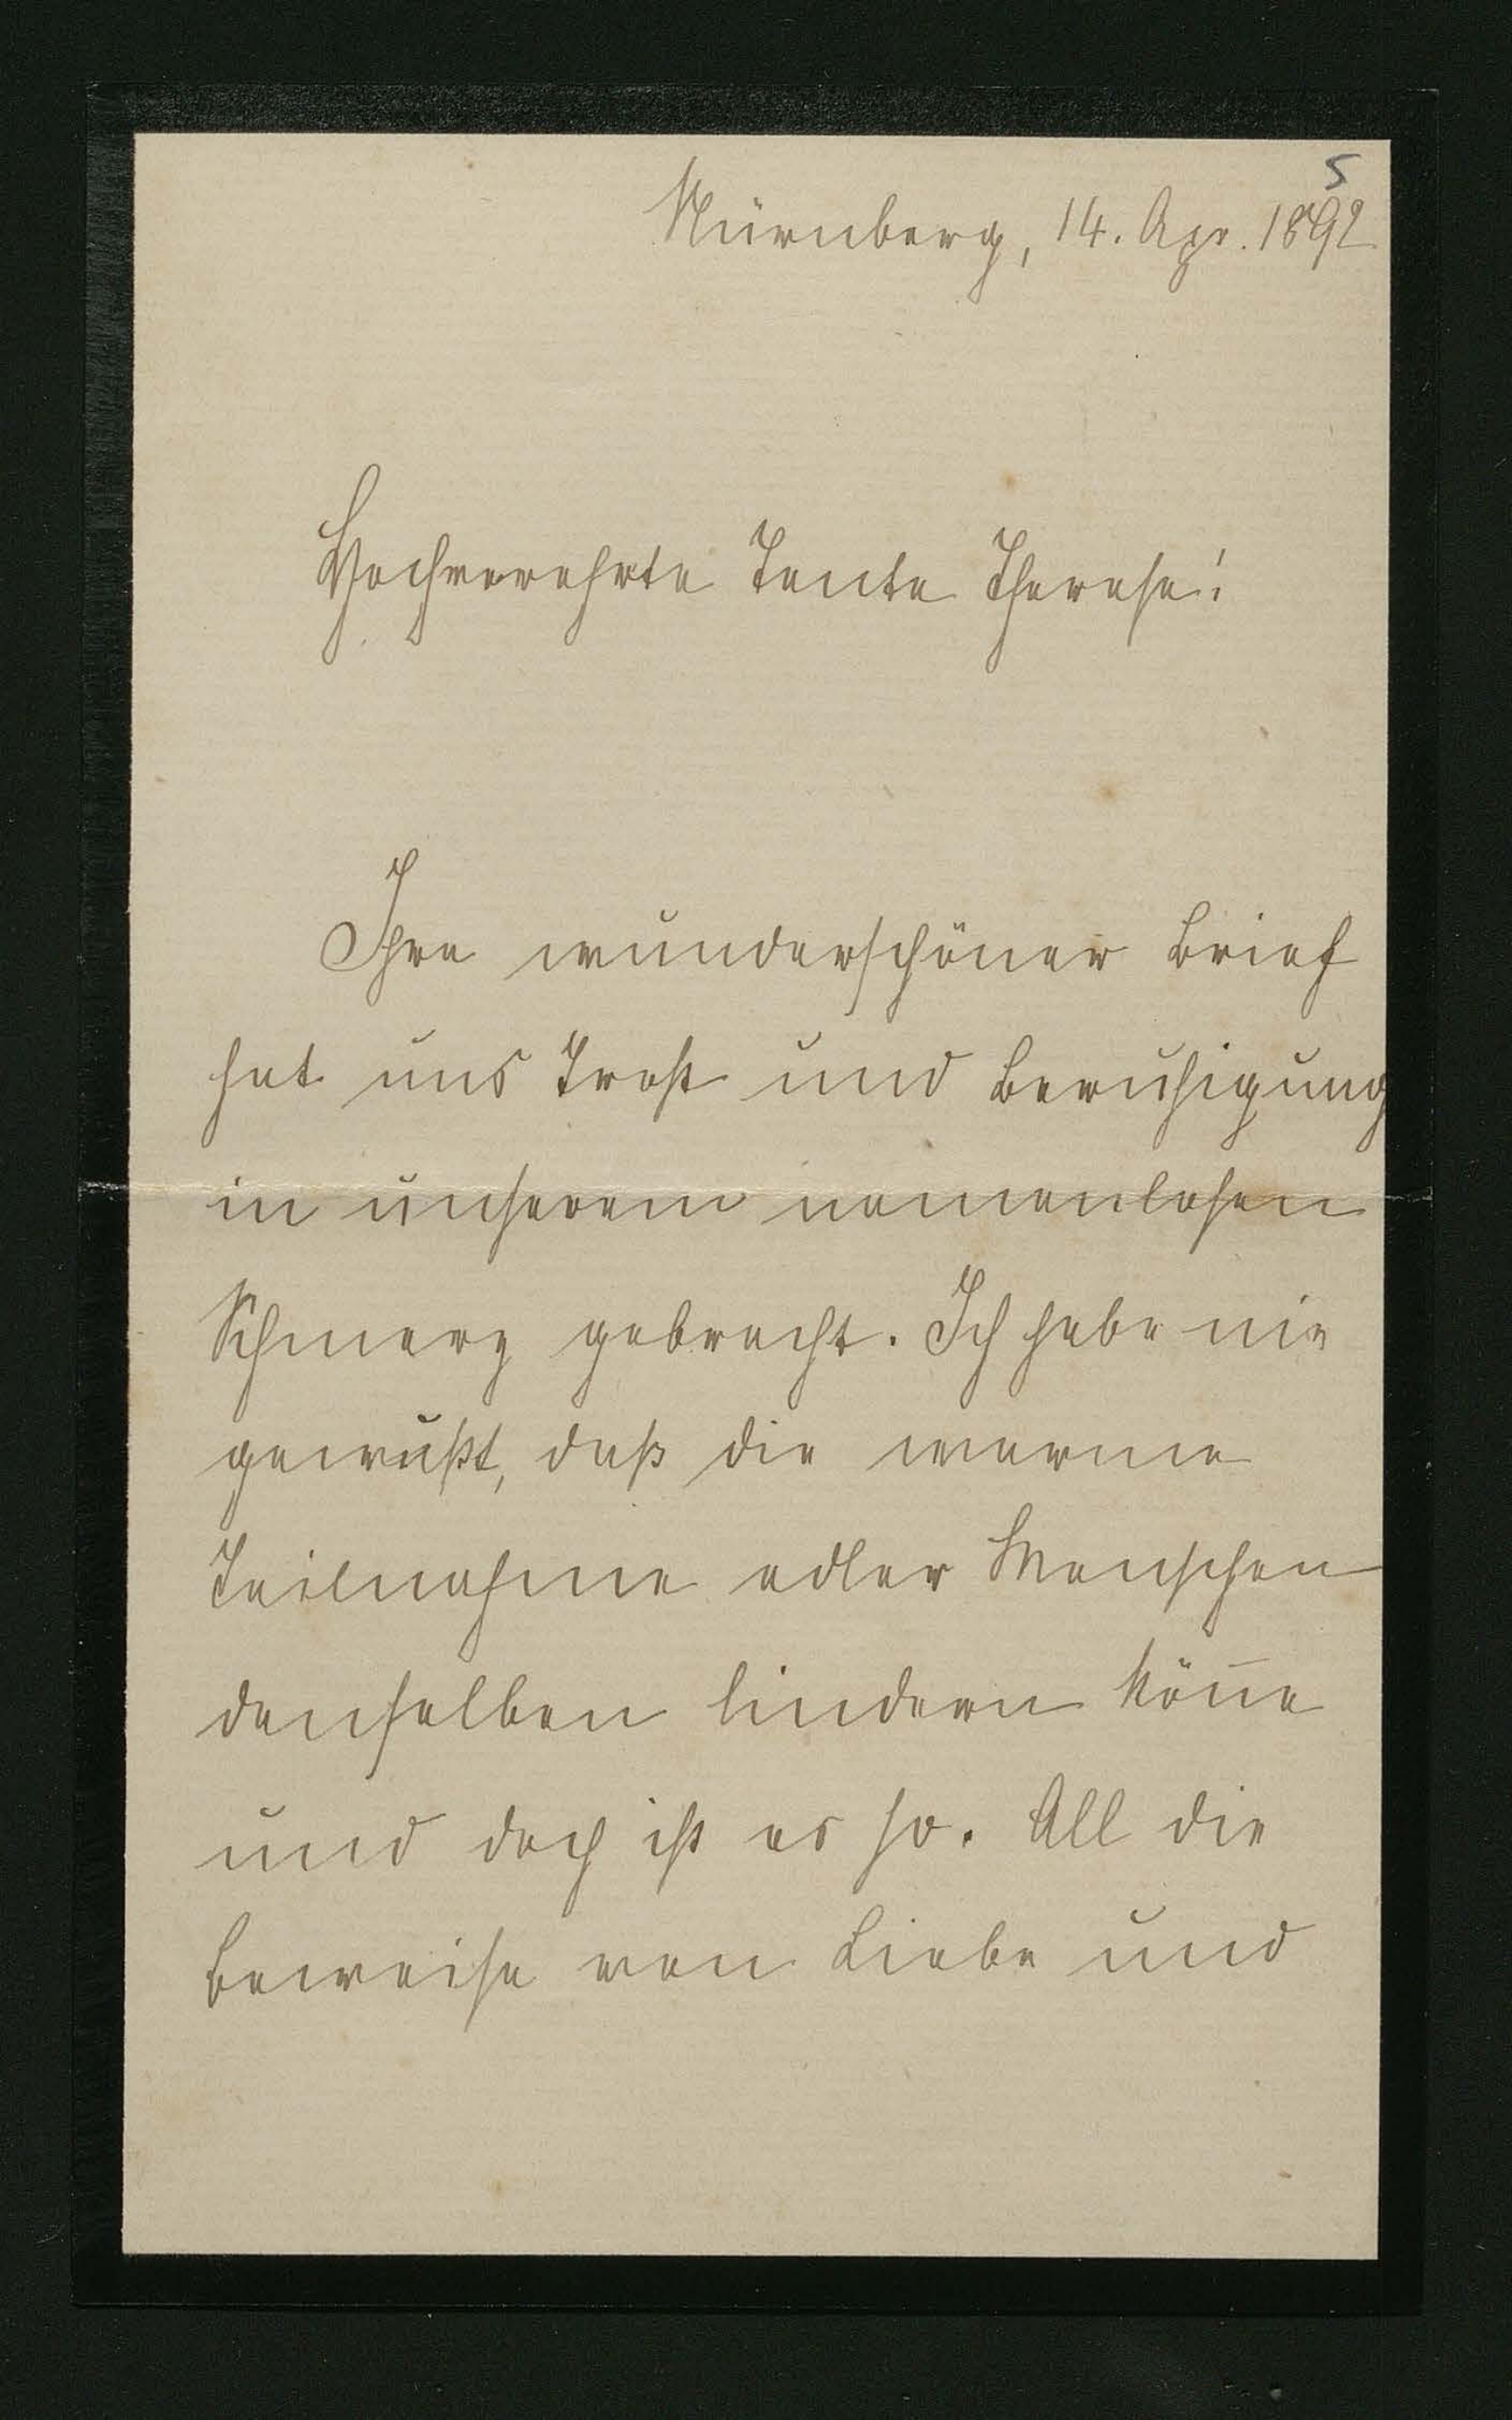 5
Nürnberg, 14. Apr. 1892
Hochverehrte Tante Therese!
Ihre wunderschöner Brief
hat uns Trost und Beruhigung
in unserem namenlosen
Schmerz gebracht. Ich habe nie
gewußt, daß die warme
Teilnahme edler Menschen
denselben lindern kön̄e
und doch ist es so. All die
Beweise von Liebe und